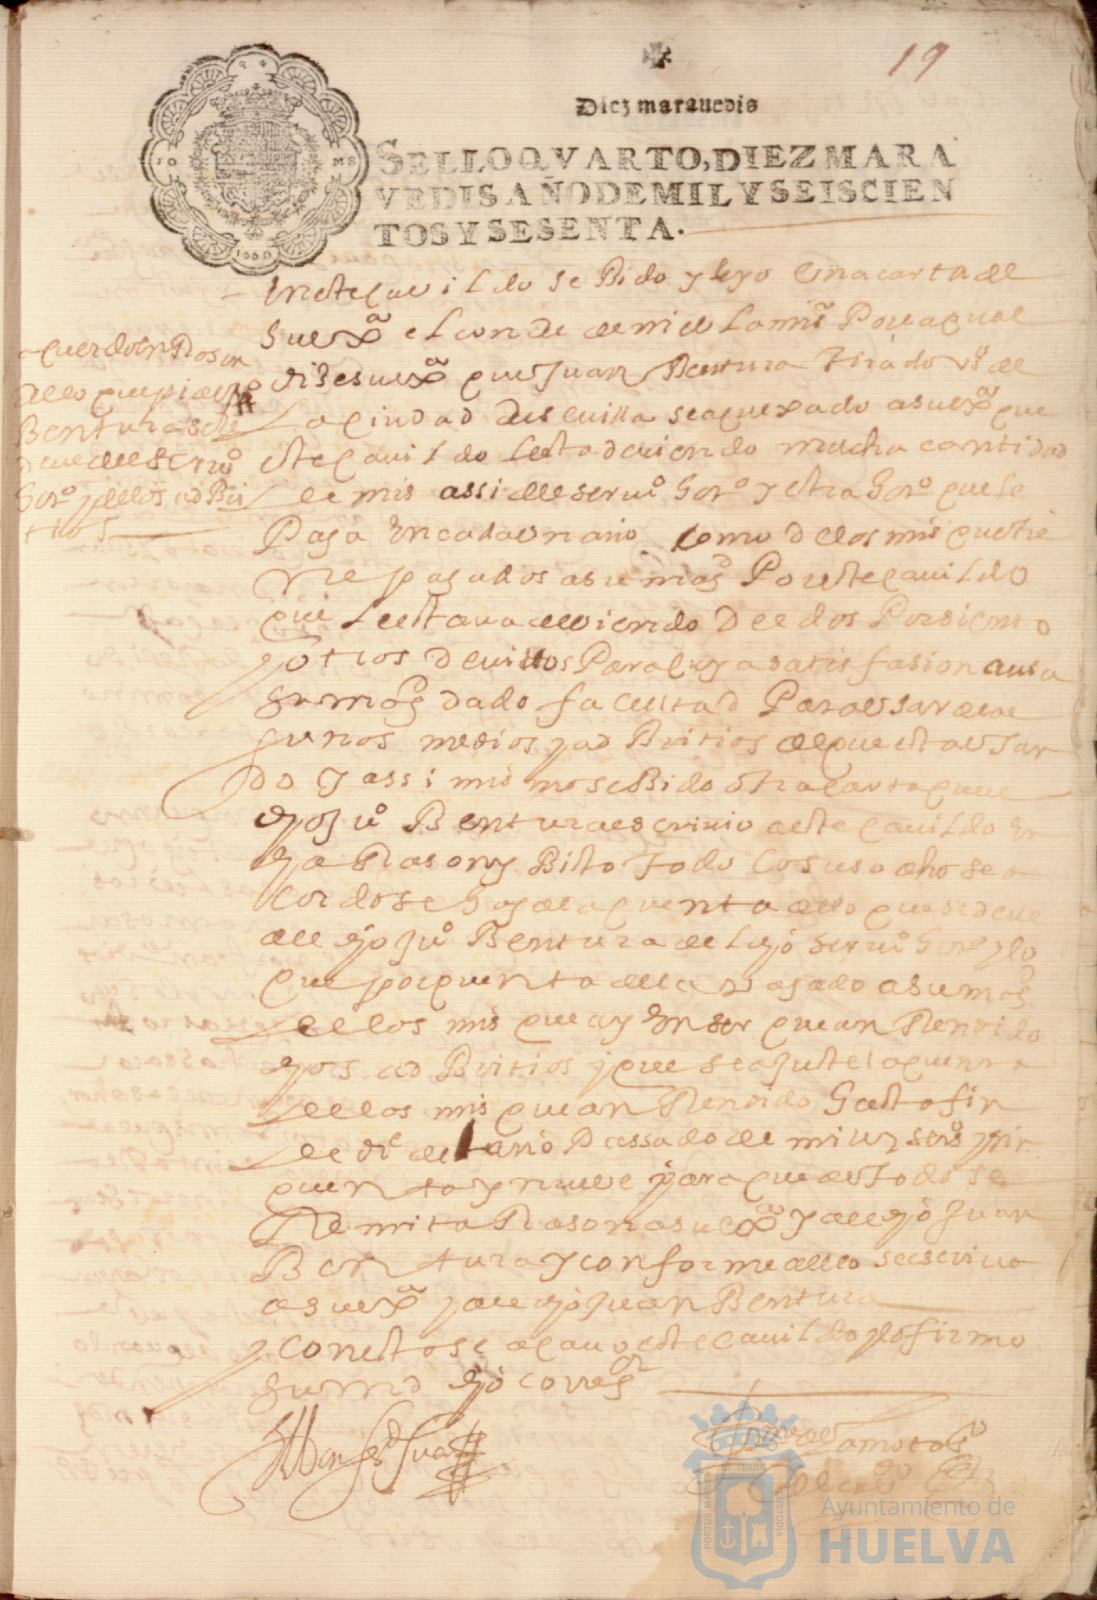 19
Diez marauedis
SELLO QVARTO, DIEZ MARA
VEDIS AÑO DE MIL Y SEISCIEN
TOS Y SESENTA.
1660
En este cauildo se Bido y leyo Una carta del
su exª el conde de la Por la qual
dise su exª que Juan Bentura Tirado vº de
La ciudad de seuilla se a quexado a su exª que
este cauildo le esta deuiendo mucha cantidad
de mrs assi del seruº hordº y estrahordº que se
Paga En cada un año como de los mrs que tie
ne pagados a su magd Por este cauildo
que le estaua deuiendo De el dos Por siento
y otros devitos Para cuya satisfasion aui a
su magd dado facultad Para usar de al
gunos medios y adBitrios de que esta usan
do y assi mismo se Bido otra carta que el
dho Juº Bentura escriuio a este cauildo En
Rason y Bisto Todo lo suso dho se a
cordo se haga la quenta de lo que se deue
al dho Juº Bentura del dho seruº hordº y lo
que por quenta della a pagado a su magd
de los mrs que ay En ser que an Rendido
dhos adBitrios y que se ajuste la quenta
de los mrs que an Rendido hasta fin
de diº del año Passado de mil y seisº y sin
quenta y nueue para que de todo se
Remita Rason a su exª y al dho Juan
Bentura y conforme a ello se escriua
a su exª y al dho Juan Bentura
y con esto se acauo este cauildo y lo firmo
su md dho corregor
acuerdo En Rason
de lo que pide Juº
Bentura se le
deue del seruº
horº y de los adBi
trios
Ayuntamiento de
HUELVA